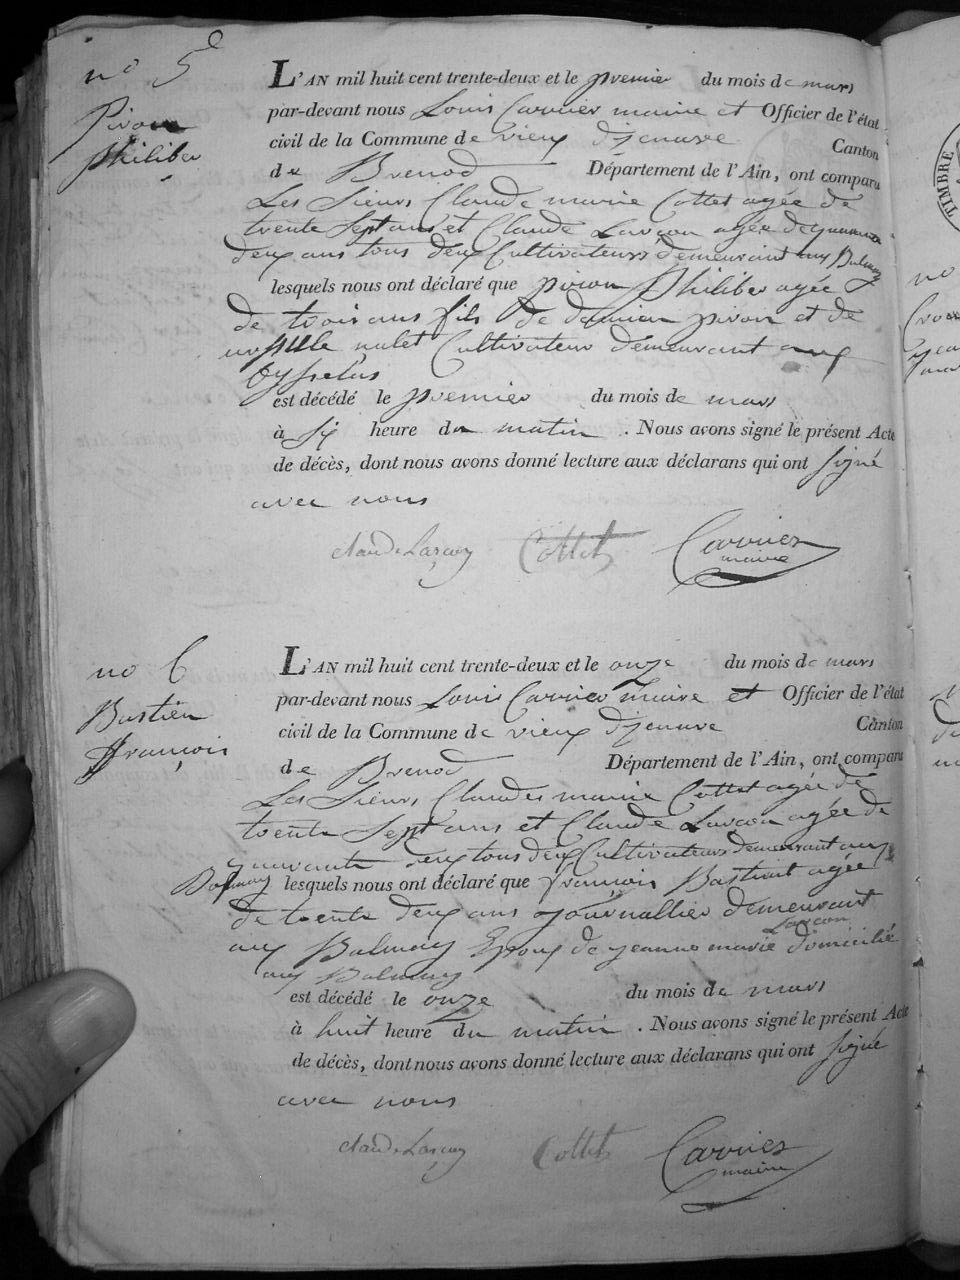 no 5e
Piron
Philiber
L'AN mil huit cent trente-deux et le premier du mois de mars
par-devant nous Louis Carrier maire et Officier de l'état
civil de la Commune de vieux d'jenave Canton
de Brenod Département de l'Ain, ont comparu
Les Sieurs Claude marie Cottet agée de
trente Sept ans et Claude Larçon agée de quarante
deux ans tous deux Cultivateurs demeurant aux Balmay
lesquels nous ont déclaré que piron Philiber agée
de trois ans fils de damien piron et de
nulet Cultivateur demeurant aux
est décédé le premier du mois de mars
à Six heure du matin . Nous avons signé le présent Acte
de décès, dont nous avons donné lecture aux déclarans qui ont signé
avec nous
claude Larçon Cottet Carrier
maire
no 6
Bastien
françois
L'AN mil huit cent trente-deux et le onze du mois de mars
par-devant nous Louis Carrier maire et Officier de l'état
civil de la Commune de vieux d'jenave Canton
de Brenod Département de l'Ain, ont comparu
Les Sieurs Claudes marie Cottet agée de
trente Sept ans et Claude Larçon agée de
quarante deux tous deux Cultivateurs demeurant aux
Balmay lesquels nous ont déclaré que françois Bastient agée
de trente deux ans journallier demeurant
aux Balmay Epoux de jeanne marie Larçon domiciliée
aux Balmay
est décédé le onze du mois de mars
à huit heure du matin . Nous avons signé le présent Acte
de décès, dont nous avons donné lecture aux déclarans qui ont signé
avec nous
claude Larçon Cottet Carrier
maire
TIMBRE
no